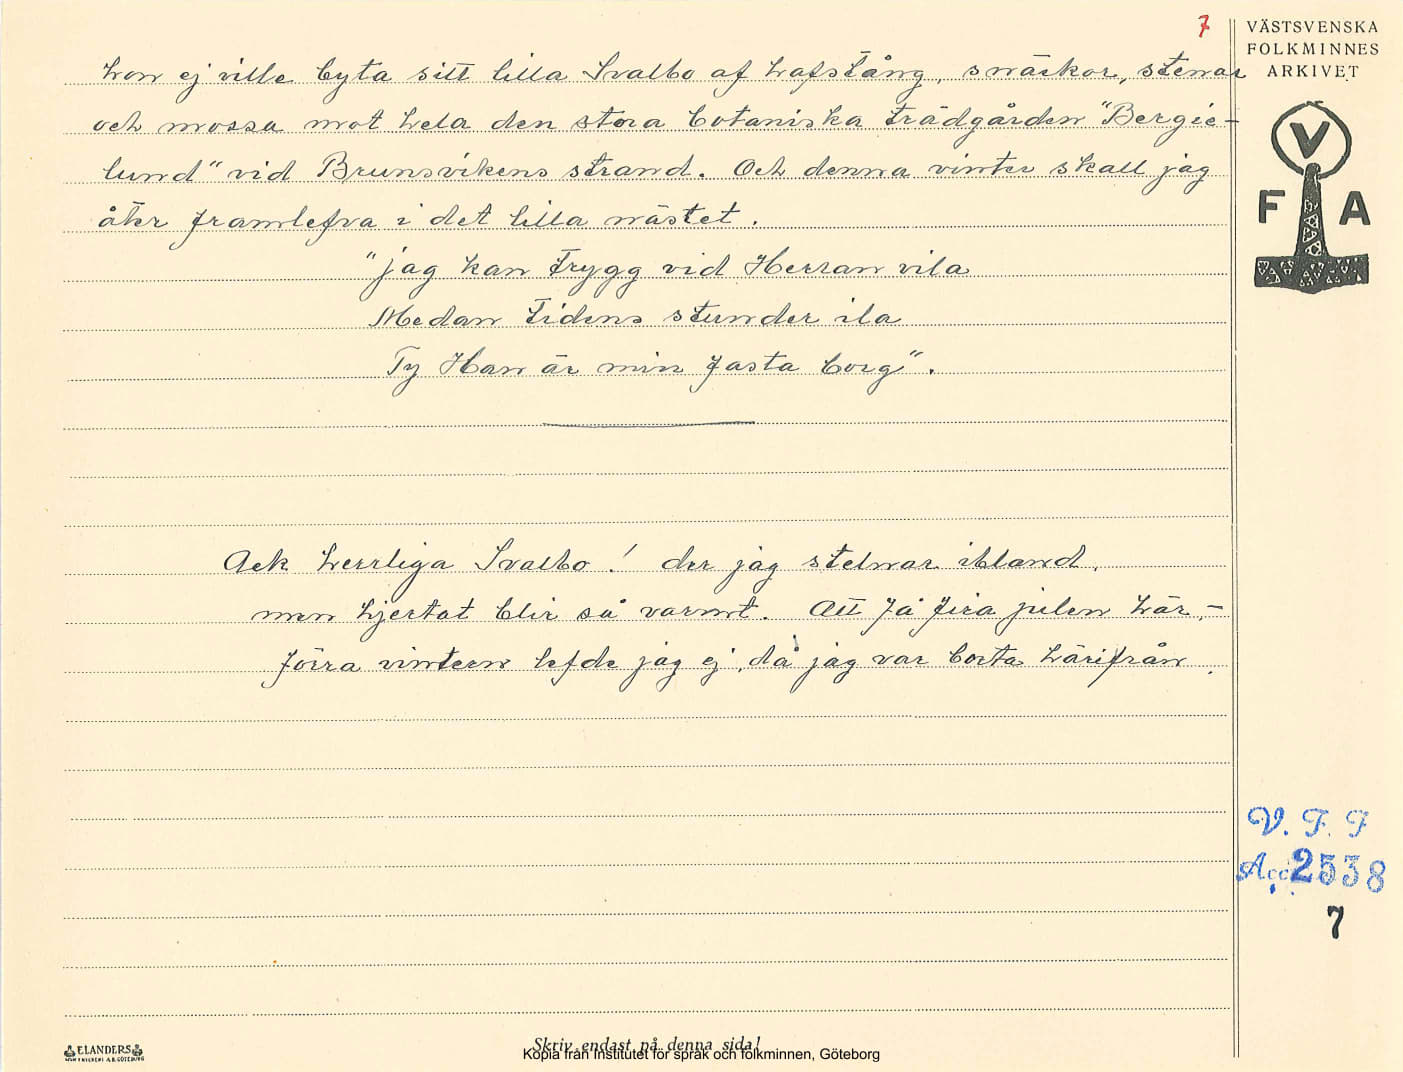 7
VÄSTSVENSKA
FOLKMINNES
ARKIVET
hon ej ville byta sitt lilla Svalbo af hafstång, snäckor, stenar
och mossa mot hela den stora botaniska trädgården "Bergie-
lund" vid Brunsvikens strand. Och denna vinter skall jag
åter framlefva i det lilla nästet.
"jag kan trygg vid Herran vila
Medan tidens stunder ila
Ty Han är min fasta borg".
Ack herrliga Svalbo! der jag stelnar ibland,
men hjertat blir så varmt. Att få fira julen här, -
förra vintern lefde jag ej, då jag var borta härifrån.
V
F A
V. F. F
Acc 2538
7
ELANDERS
Skriv endast på denna sida!
Kopia från Institutet för språk och folkminnen, Göteborg